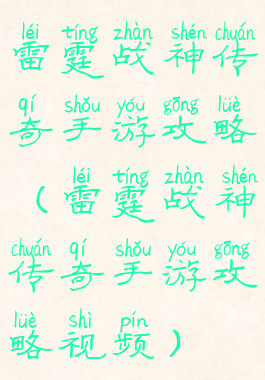 léi tíng zhàn shén chuán
雷霆战神传
qí shǒu yóu gōng lüè
奇手游攻略
léi tíng zhàn shén
（雷霆战神
chuán qí shǒu yóu gōng
传奇手游攻
lüè shì pín
略视频）